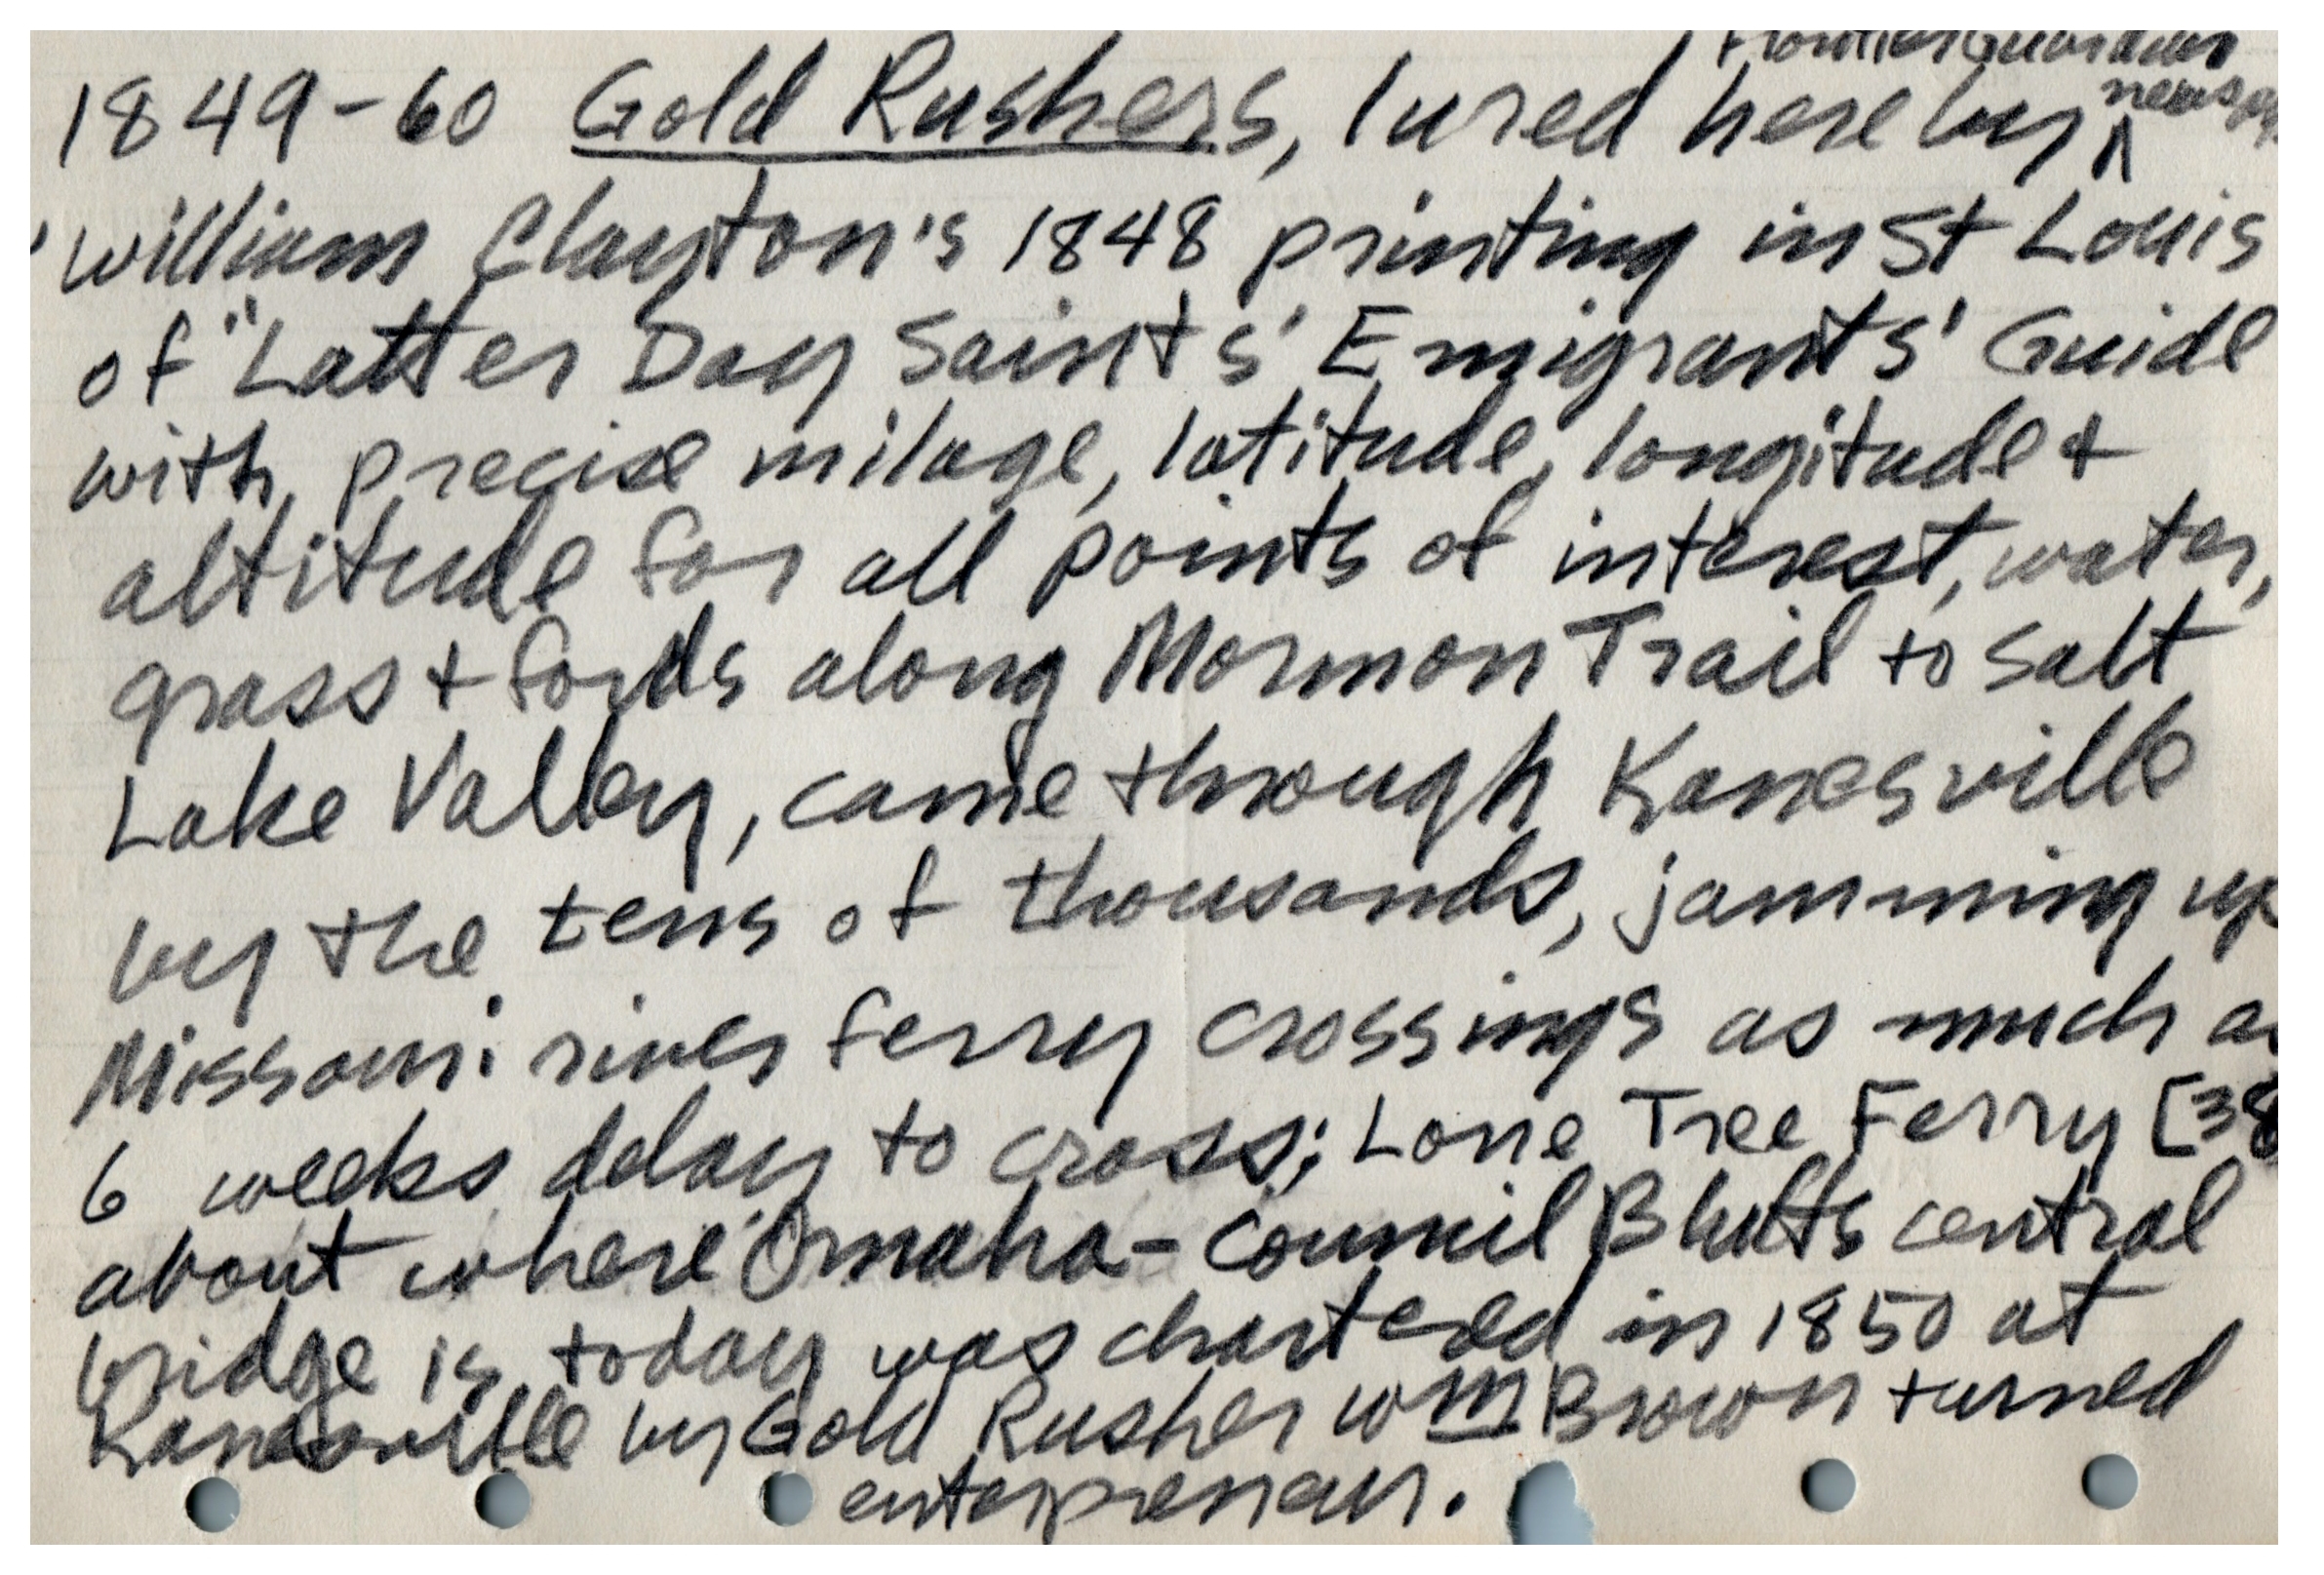 Frontier Guardian
1849-60 Gold Rushers, lured here by ^
William Clayton's 1848 printing in St Louis
of "Latter Day Saints' Emigrants' Guide
with precise milage, latitude, longitude +
altitude for all points of interest, water,
grass + fords along Mormon Trail to Salt
Lake Valley, came through Kanesville
by the tens of thousands, jamming up
Missouri river ferry crossings as much as
6 weeks delay to cross; Lone Tree Ferry [38
about where Omaha-Council Bluffs central
bridge is today was chartered in 1850 at
Kanesville by Gold Rusher Wm Brown turned
enterpreneur.